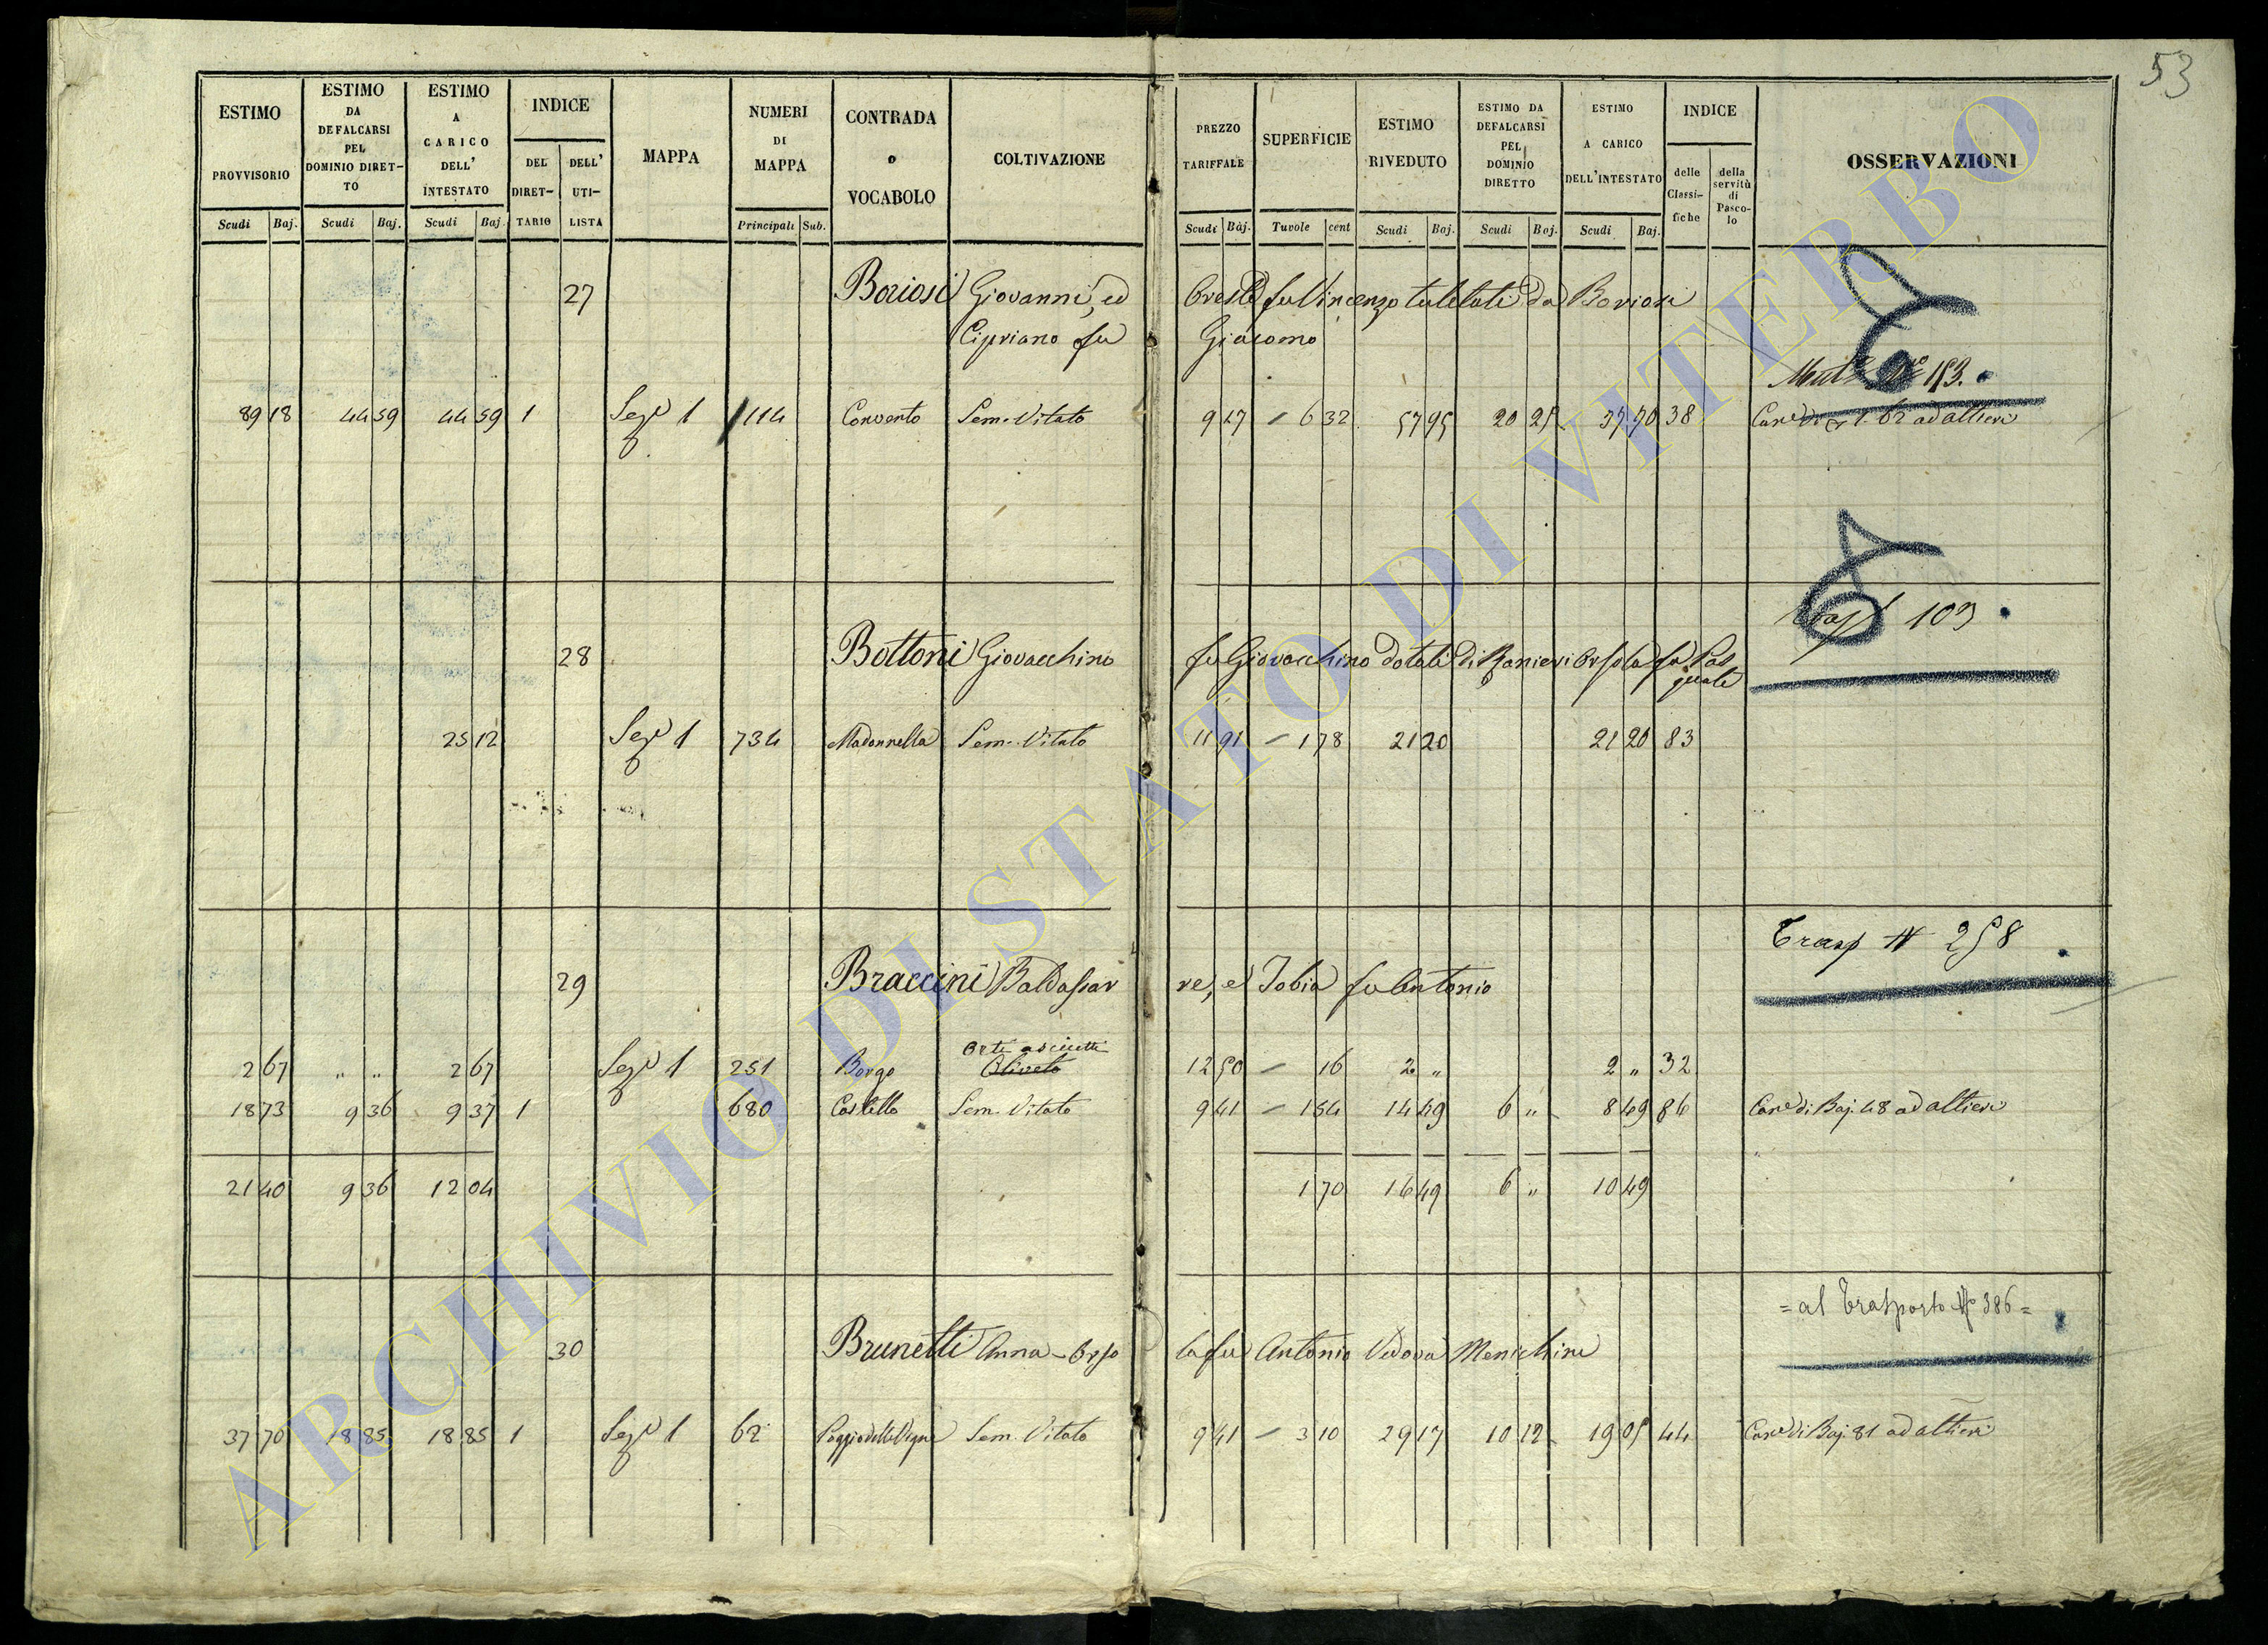 53
ESTIMO PROVVISORIO Scudi Baj.
ESTIMO DA DEFALCARSI PEL DOMINIO DIRETTO Scudi Baj.
ESTIMO A CARICO DELL' INTESTATO Scudi Baj.
INDICE DEL DIRETTARIO DELL' UTILISTA
MAPPA
NUMERI DI MAPPA Principali Sub.
CONTRADA o VOCABOLO
COLTIVAZIONE
PREZZO TARIFFALE Scudi Baj.
SUPERFICIE Tavole cent
ESTIMO RIVEDUTO Scudi Baj.
ESTIMO DA DEFALCARSI PEL DOMINIO DIRETTO Scudi Baj.
ESTIMO A CARICO DELL'INTESTATO Scudi Baj.
INDICE delle Classifiche della servitù di Pascolo
OSSERVAZIONI
27 Boriosi Giovanni, ed Oreste fu Vincenzo tutelati da Boriosi
Cipriano fu Giacomo
No 153.
89 18 44 59 44 59 1 Sez.e 1 114 Convento Sem. Vitato 9 17 – 6 32 57 95 20 25 37 70 38 Can.e di 1.62 ad altieri
Trasp 103
28 Bottoni Giovacchino fu Giovacchino dotali di Ranieri Orsola fu Pasquale
25 12 Sez.e 1 734 Madonnella Sem. Vitato 11 91 – 1 78 21 20 21 20 83
Trasp N 258
29 Braccini Baldassarre, e Tobia fu Antonio
Orti asciutti
2 67 " " 2 67 Sez.e 1 251 Borgo Oliveto 12 50 – 16 2 " 2 " 32
18 73 9 36 9 37 1 680 Castello Sem. Vitato 9 41 – 1 54 14 49 6 " 8 49 86 Can.e di Baj. 48 ad altieri
21 40 9 36 12 04 1 70 16 49 6 " 10 49
= al Trasporto No 386 =
30 Brunetti Anna-Orsola fu Antonio Vedova Menichini
37 70 18 85 18 85 1 Sez.e 1 62 Poggio delle Vigne Sem. Vitato 9 41 – 3 10 29 17 10 12 19 05 44 Can.e di Baj. 81 ad altieri
ARCHIVIO DI STATO DI VITERBO